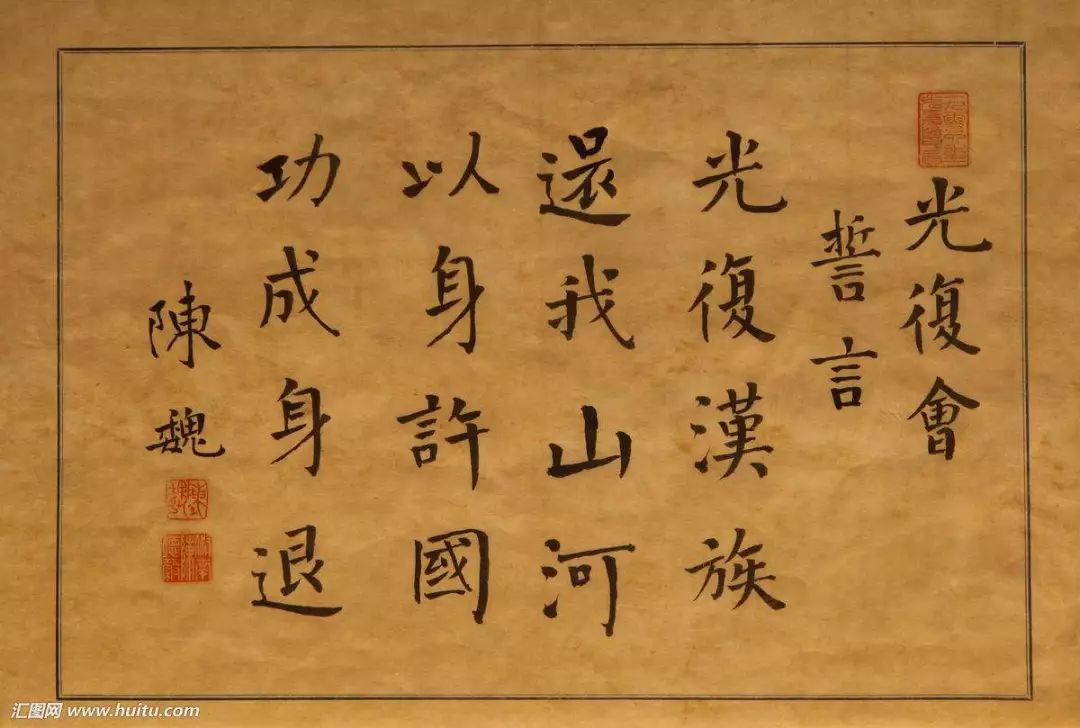 光復會
誓言
光復漢族
還我山河
以身許國
功成身退
陳魏
汇图网 www.huitu.com